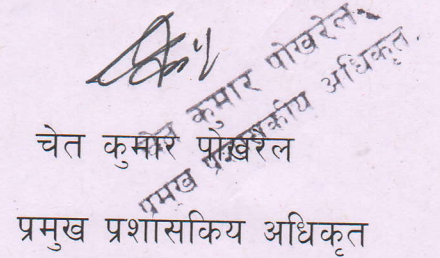 चेत कुमार पोखरेल
प्रमुख प्रशासकीय अधिकृत
चेत कुमार पोखरेल
प्रमुख प्रशासकिय अधिकृत